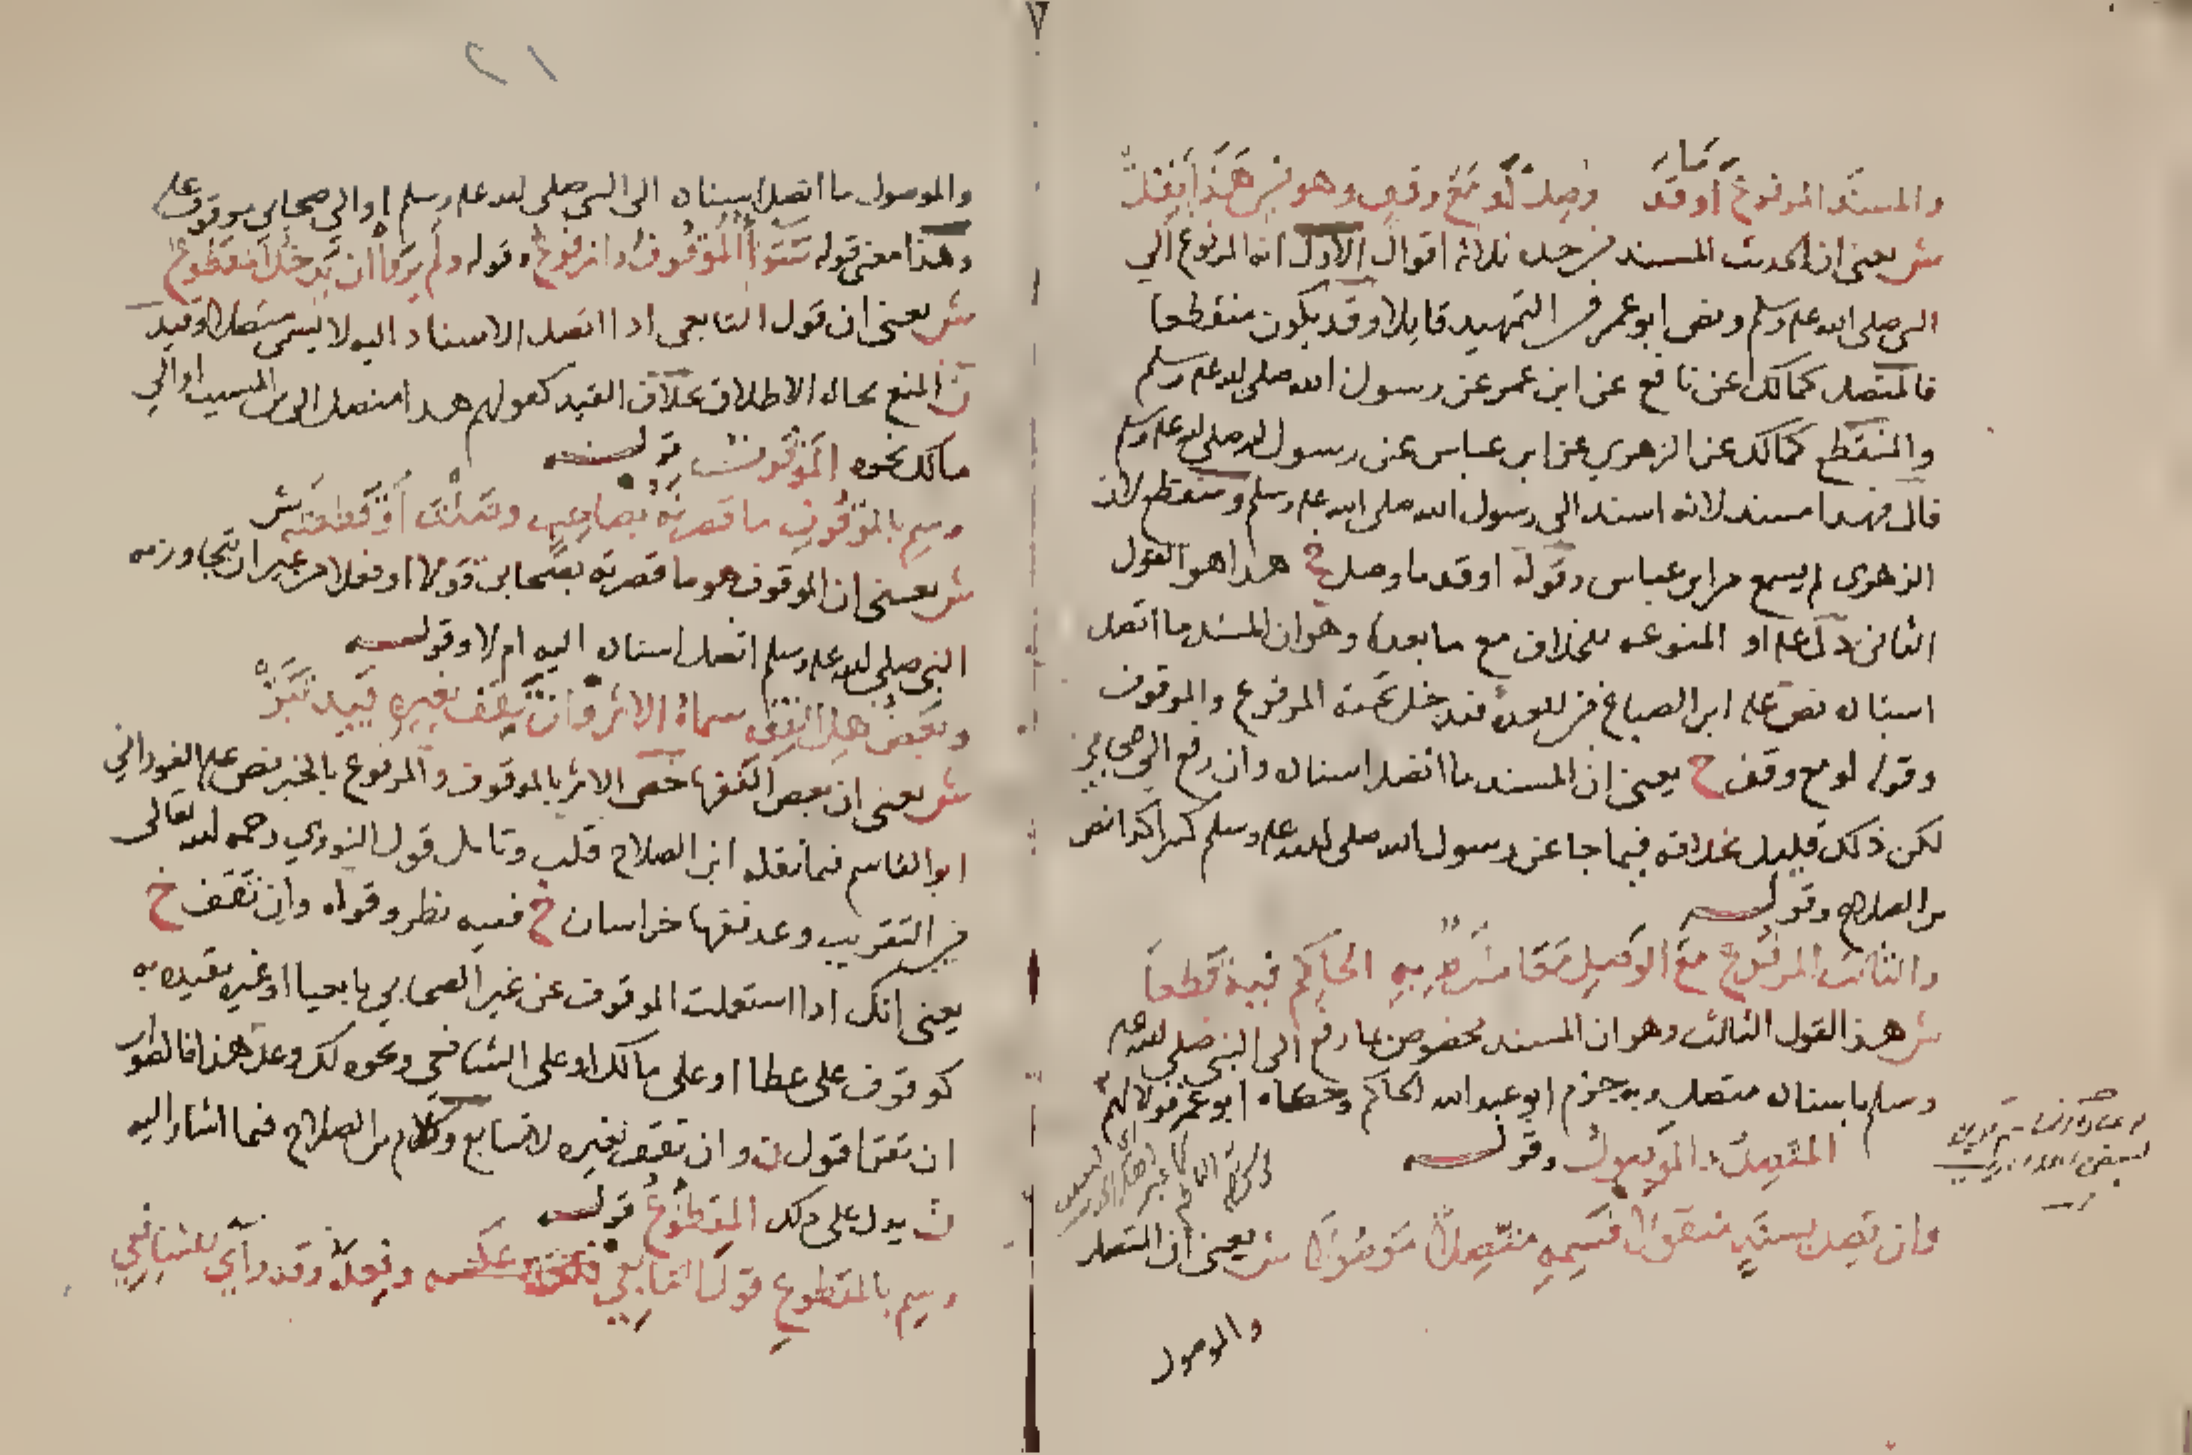 والمسند المرفوع أو ما قد وصل لو مع وقف وهو في هذا يقل
ش يعني ان الحديث المسند في حده ثلاثة اقوال الاول انه المرفوع الي
النبي صلى الله عليه وسلم ونص ابو عمر في التمهيد قايلا وقد يكون منقطعا
فالمتصل كمالك عن نافع عن ابن عمر عن رسول الله صلى الله عليه وسلم
والمنقطع كمالك عن الزهري عن ابن عباس عن رسول الله صلى الله عليه وسلم
قال فهذا مسند لانه اسند الي رسول الله صلى الله عليه وسلم ومنقطع لان
الزهرى لم يسمع من ابن عباس وقوله او قد ما وصل خ هذا هو القول
الثاني دل عليه او المنوعه للخلاف مع ما بعدها وهو ان المسند ما اتصل
اسناده نص عليه ابن الصباغ في العده فيدخل تحته المرفوع والموقوف
وقوله لو مع وقف خ يعني ان المسند ما اتصل اسناده وان رفع الي صحابي
لكن ذلك قليل بخلافه فيما جا عن رسول الله صلى الله عليه وسلم كثير اكذا نص
بن الصلاح وقوله
والثالث المرفوع مع الوصل معا شرط به الحاكم فيه قطعا
ش هذا القول الثالث وهو ان المسند مخصوص بما رفع الى النبي صلى الله عليه
وسلم باسناد متصل وبه جزم ابو عبد الله الحاكم وحكاه ابو عمر قولا لهم
المتصل والموصول وقوله
وان تصل بسند منقولا فسمه متصلا موصولا ش يعني ان المتصل
والموصول
٢١
والموصول ما اتصل اسناده الى النبي صلى الله عليه وسلم او الي صحابي موقوف عليه
وهذا معني قوله سوا الموقوف والمرفوع وقوله ولم يروا ان يدخل المقطوع
ش يعني ان قول التابعي اذا اتصل الاسناد اليه لا يسمى متصلا وقيد
ن المنع بحاله الاطلاق بخلاف القيد كقولهم هذا متصل الى بن المسيب او الي
مالك نحوه الموقوف قوله
وسم بالموقوف ما قصرته بصاحب وصلت أو قطعته
ش يعني ان الموقوف هو ما قصرته بصحابي قولا او فعلا من غير ان تتجاوز به
النبي صلى الله عليه وسلم اتصل اسناده اليه ام لا وقوله
وبعض اهل الفقه سماه الاثر وان تقف بغيره قيد تبر
ش يعني ان بعض الفقها خص الاثر بالموقوف والمرفوع بالخبر نص عليه الفوراني
ابو القاسم فيما نقله ابن الصلاح قلت وتامل قول النووي رحمه الله تعالى
في التقريب وعند فقها خراسان خ ففيه نظر وقوله وان تقف خ
يعني انك اذا استعملت الموقوف عن غير الصحابي يا يحيا او غيره بقيده به
كوقوف على عطا او على مالك او على الشافعي ونحوه لك وعلى هذا فالصواب
ان تقفا قول ن وان تقف بغيره لا تتابع وكلام بن الصلاح فيما اشار اليه
ن يدل على ذلك المقطوع قوله
وسم بالمقطوع قول التابعي وفعله وقد رأي للشافعي